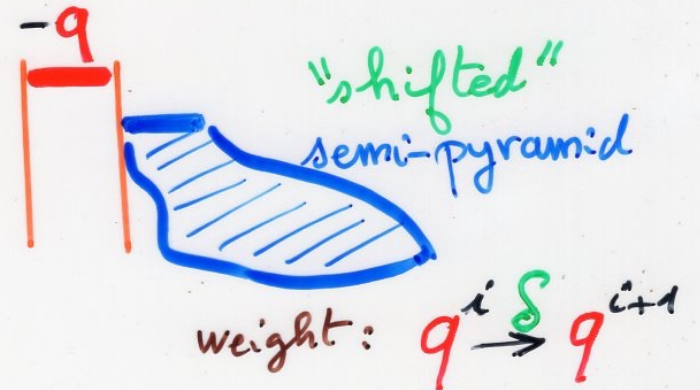 -q
"shifted"
semi-pyramid
weight: q^i δ→ q^{i+1}